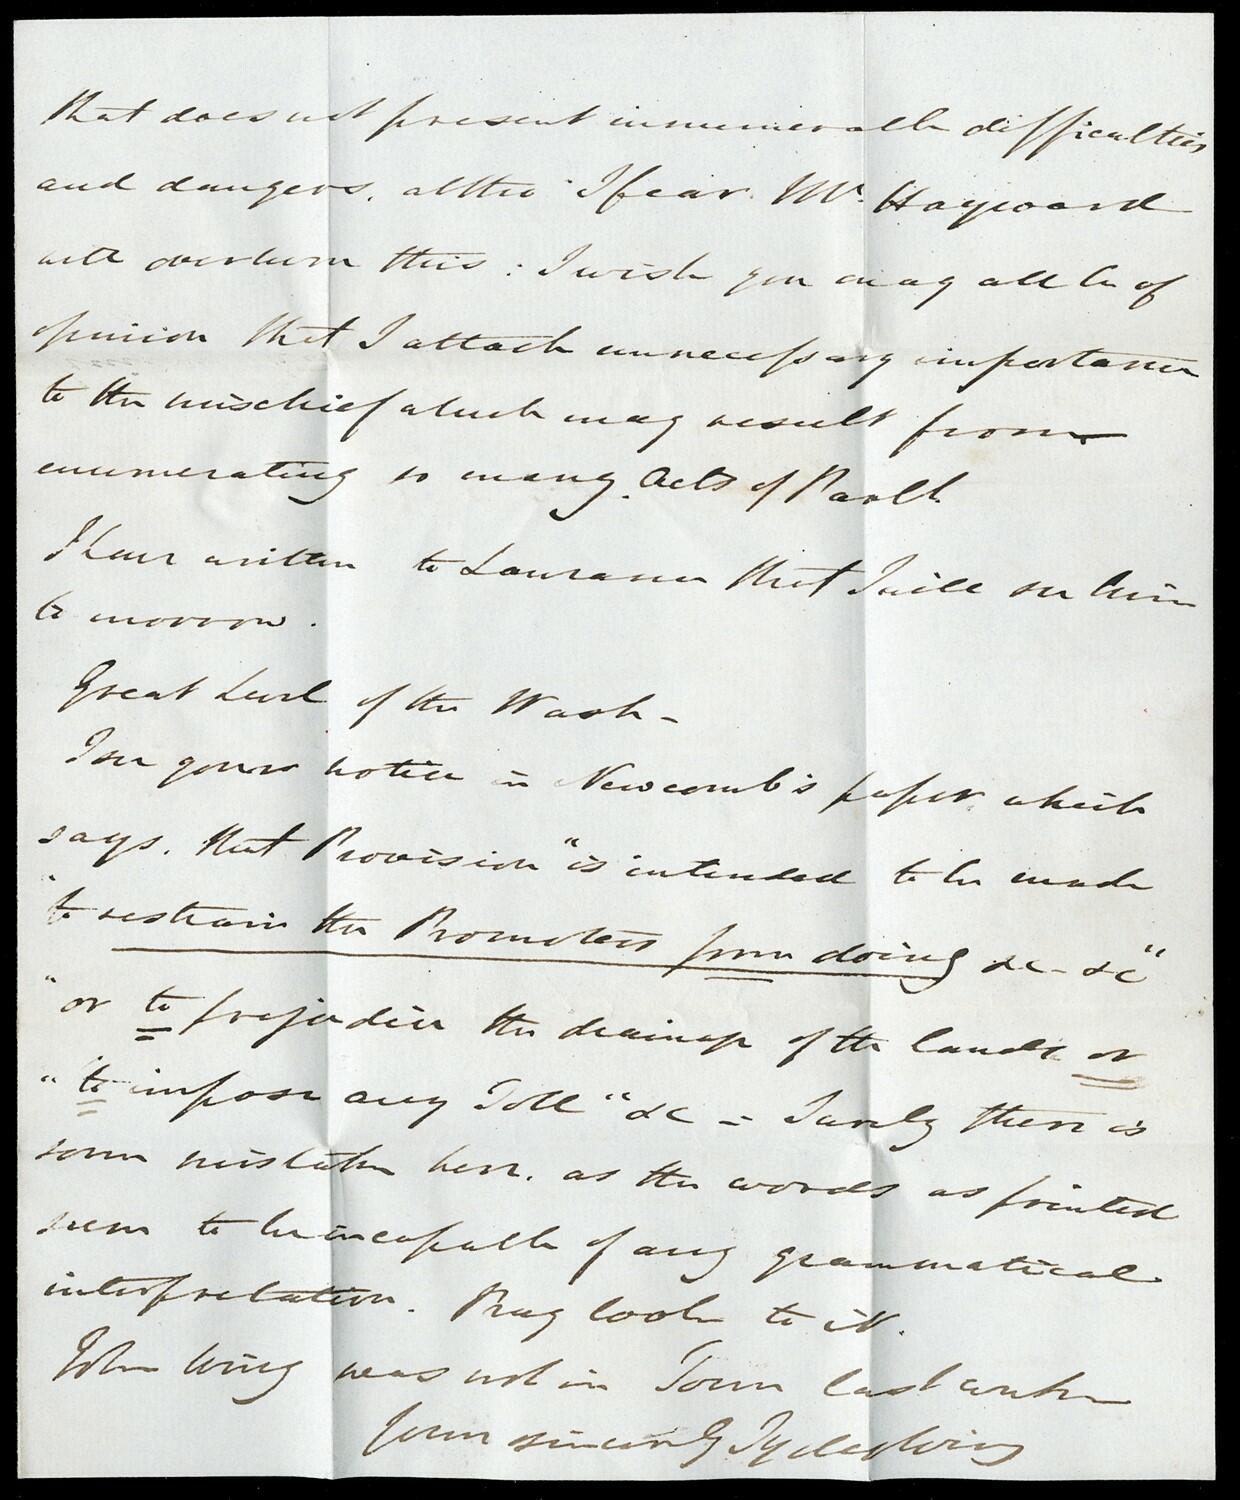 that does not present innumerable difficulties
and dangers. altho' I fear Mr. Hayward
will overturn this : I wish you may all be of
opinion that I attach unnecessary importance
to the mischief which may result from
enumerating so many Acts of Parlt.
I have written to Laurance that I will see him
to morrow.
Great Level of the Wash -
I see yours notice in Newcomb's paper which
says. that Provision "is intended to be made
"to restrain the Promoters from doing &c - &c"
"or to prejudice the drainage of the lands or
"to impose any Toll" &c = Surely there is
some mistake here. as the words as printed
seem to be incapable of any grammatical
interpretation. Pray look to it.
John Wing was not in Town last week
Yours sincerely Tycho Wing